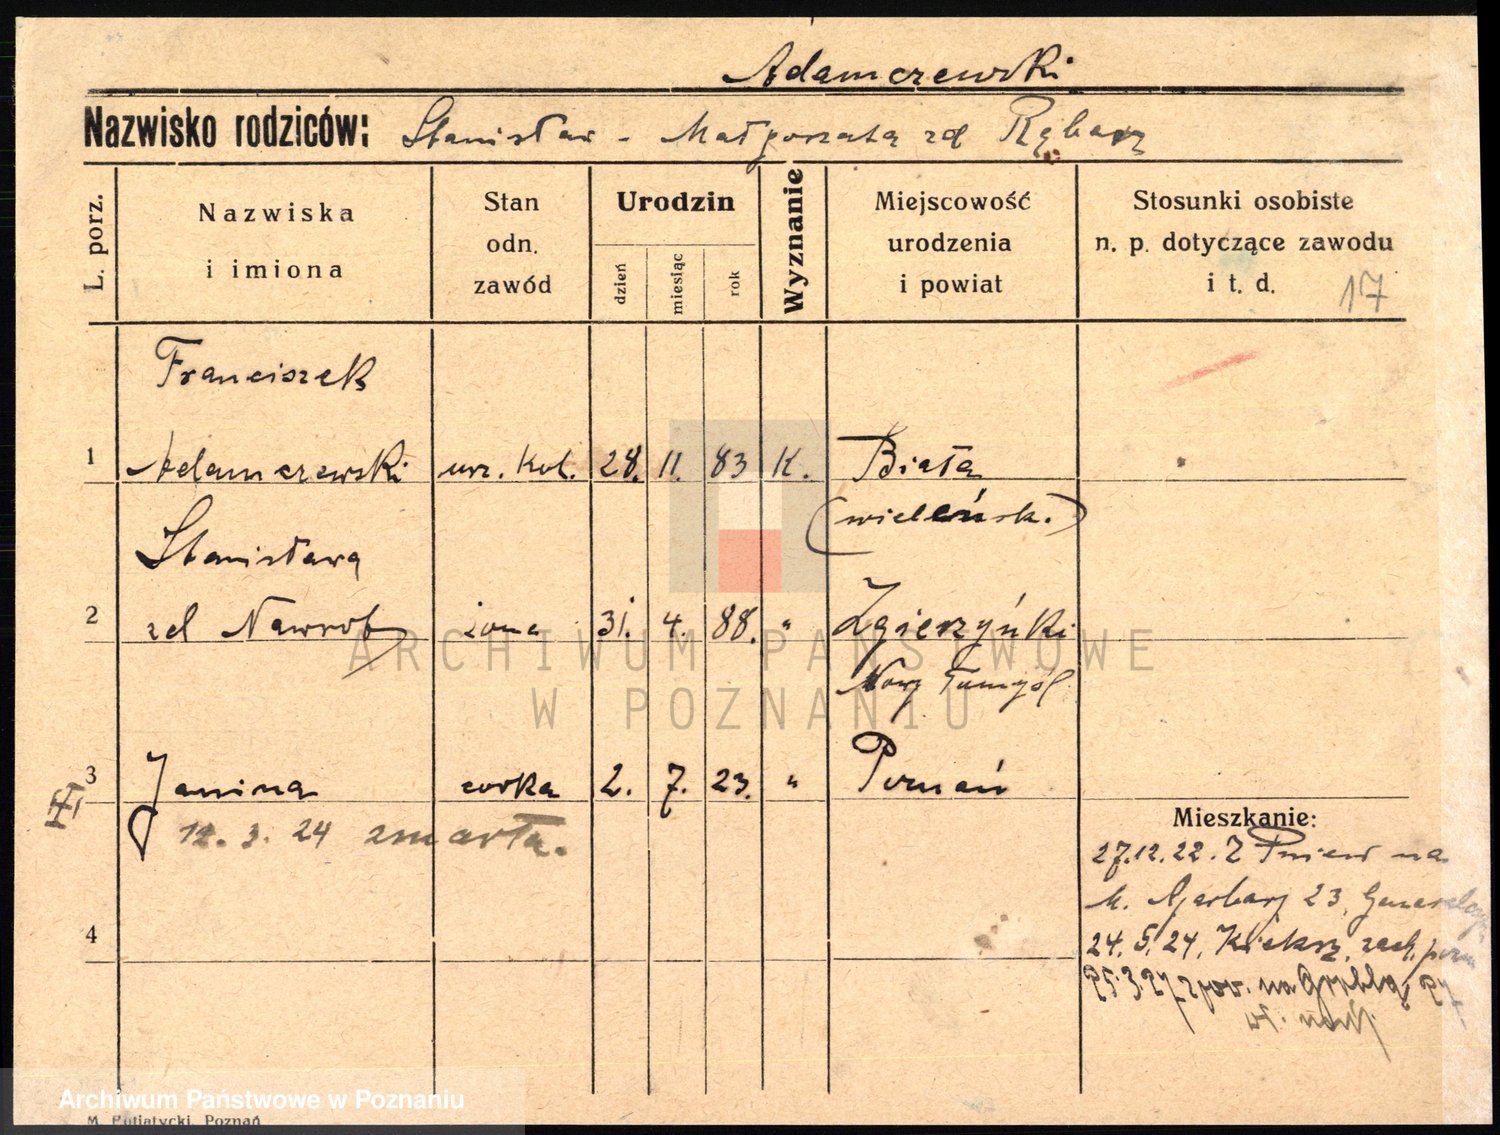 Adamczewski
Nazwisko rodziców: Stanisław - Małgorzata zd Rębacz
L. porz.
Nazwiska
i imiona
Stan
odn.
zawód
Urodzin
dzień
miesiąc
rok
Wyznanie
Miejscowość
urodzenia
i powiat
Stosunki osobiste
n. p. dotyczące zawodu
i t. d.
17
Franciszek
1 Adamczewski urz. kol. 28. 11. 83 K. Biała
(wieleńsk.)
Stanisława
2 zd Nawrot żona 31. 4. 88. " Zgierzyńki
Nowy Tomyśl
3 Janina corka 2. 7. 23. " Poznań
12. 3. 24 zmarła.
4
Mieszkanie:
27.12.22. Z Pniew na
23,
24. 5. 24, Kiekrz, zach. pozn
ARCHIWUM PAŃSTWOWE
W POZNANIU
Archiwum Państwowe w Poznaniu
M. Putiatycki, Poznań